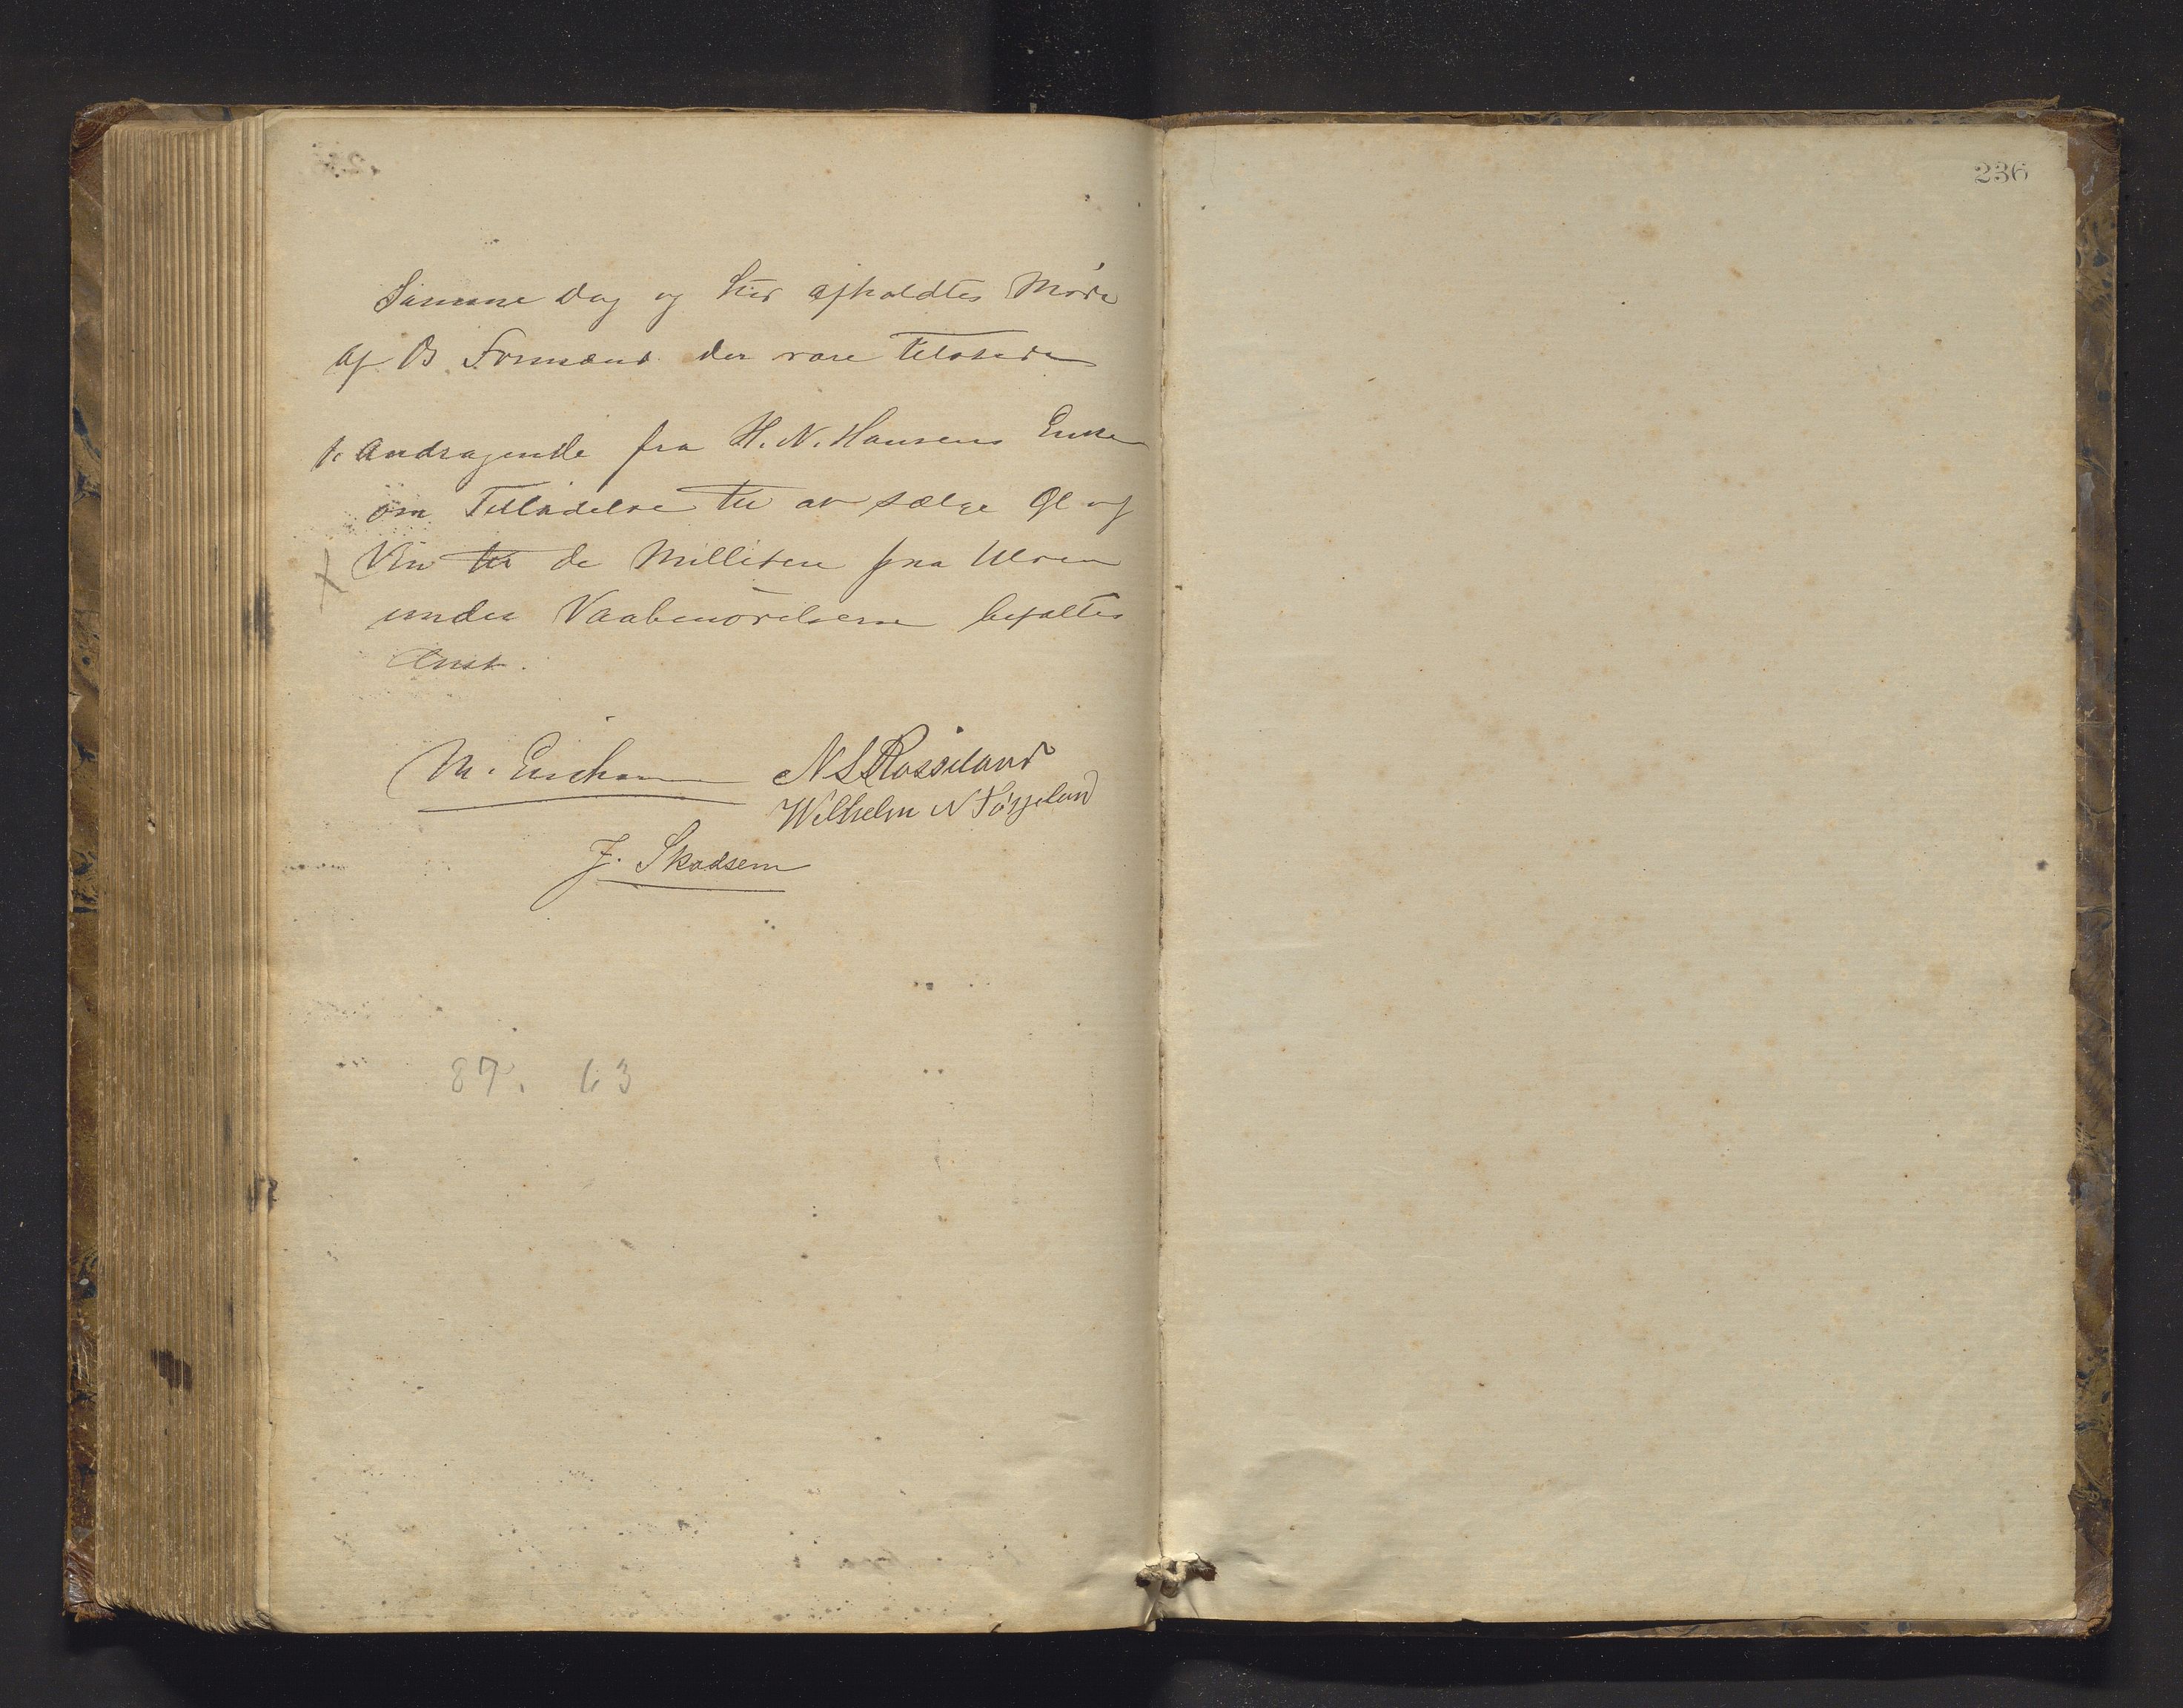 236
Samme Dag og Sted afholdtes Møde
af Os Formænd der vare tilstede
1. Andragende fra H. N. Hansens Enke
om Tilladelse til at sælge Øl og
Vin til de Millitere fra Ulven
under Vaabenøvelserne befaltes
Anst.
M. N S Røsseland
Wilhelm N
J. Skadsem
87. 63